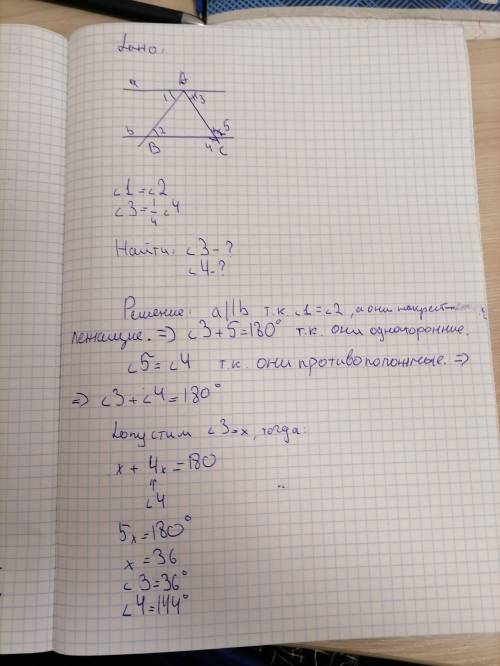 Дано:
a
A
1
3
b
2
5
B
4
C
∠1=∠2
∠3=1/4∠4
Найти: ∠3-?
∠4-?
Решение: a||b т.к. ∠1=∠2, а они накрест
лежащие. => ∠3+5=180° т.к. они односторонние.
∠5=∠4 т.к. они противоположные. =>
=> ∠3+∠4=180°
Допустим ∠3=x, тогда:
x + 4x = 180
↑
∠4
5x=180°
x = 36
∠3=36°
∠4=144°